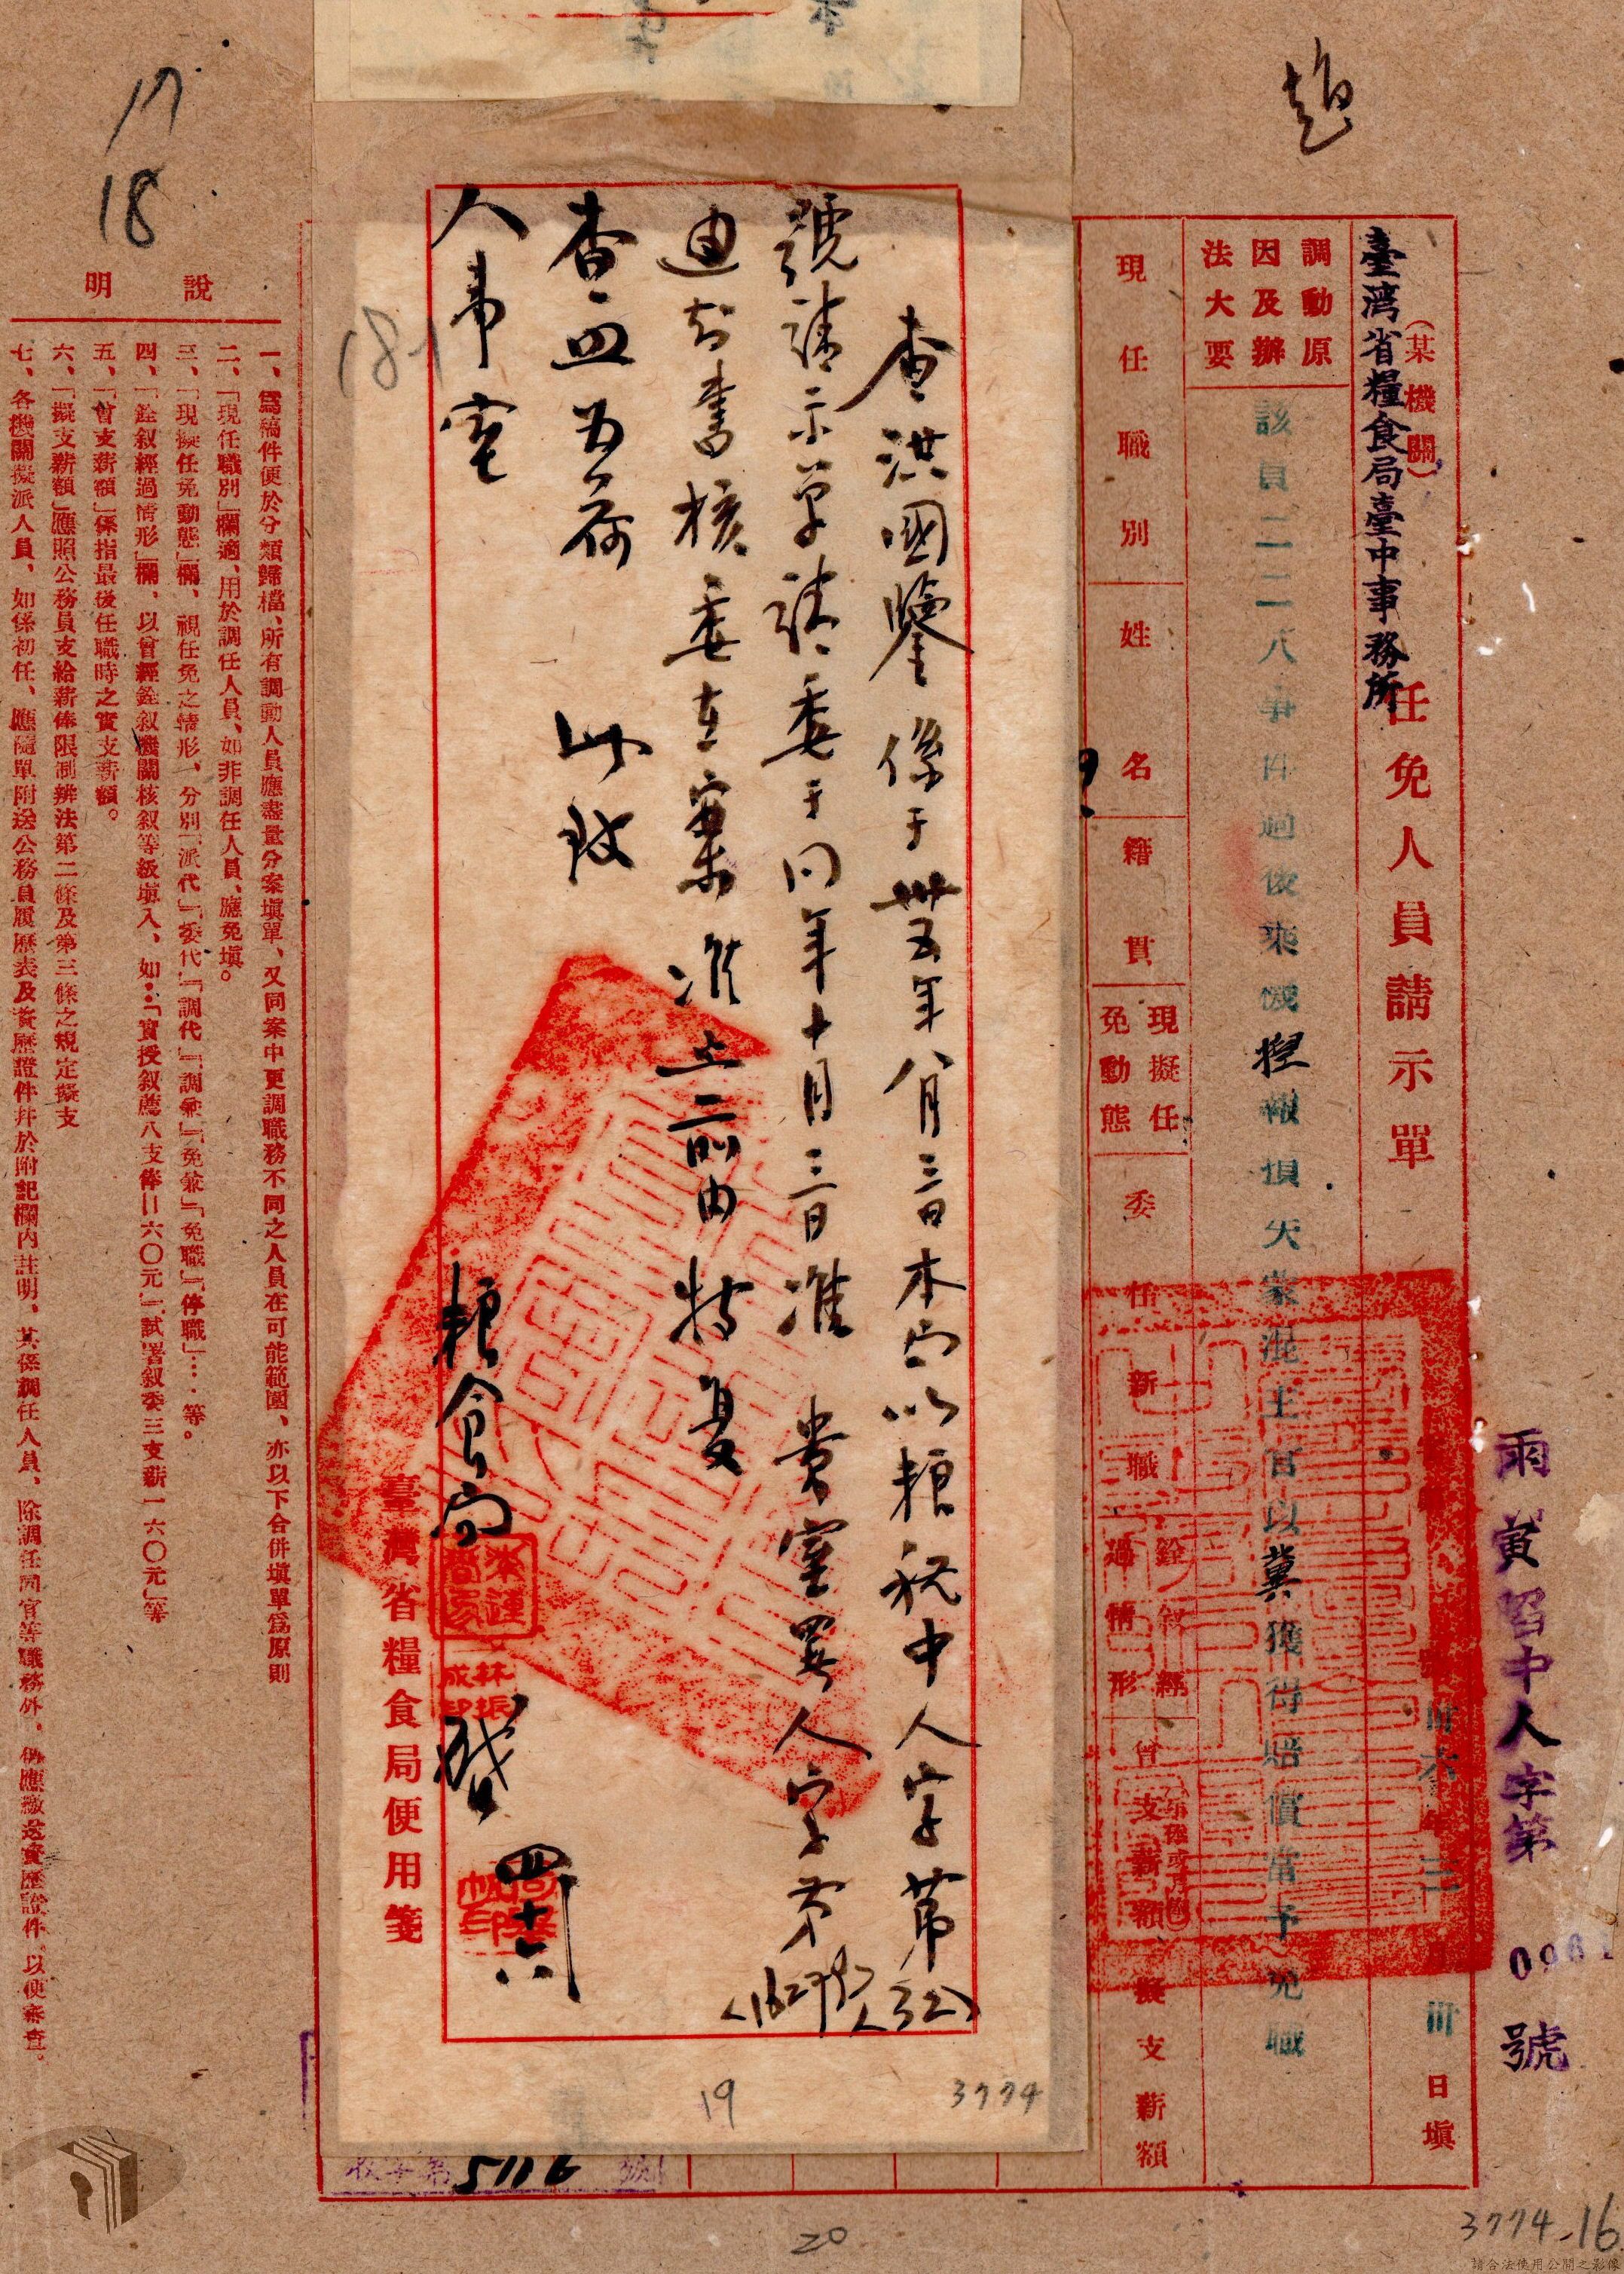 趙
雨寅啓中人字第 096 號
(某機關)
臺灣省糧食局臺中事務所
任免人員請示單
卅六年三月卅日填
調動原因及辦法大要
該員二二八事件過後乘機揑報損失蒙混主官以冀獲得賠償當予免職
現任職別
姓名
籍貫
現擬任免動態
委任新職
銓叙經過情形
曾支薪額
擬支薪額
查洪國鑒係于卅五年八月三日本局以糧秘中人字第
號請示單請委于同年十月三日准 貴室署人字第
通知書核委在案准上前由特复
查照為荷 此致
人事室
糧食局 啓
四 十六
臺灣省糧食局便用箋
林振成印
19
3774
181
收字第5116號
20
3774-16
17
18
說明
一、爲稿件便於分類歸檔、所有調動人員應盡量分案塡單、又同案中更調職務不同之人員在可能範圍、亦以下合併塡單爲原則
二、「現任職別」欄適、用於調任人員、如非調任人員、應免塡。
三、「現擬任免動態」欄、視任免之情形、分別「派代」「委代」「調代」「調兼」「免兼」「免職」「停職」…等。
四、「銓叙經過情形」欄、以曾經銓叙機關核叙等級塡入、如:「實授叙薦八支俸二六〇元」「試署叙委三支薪一六〇元」等
五、「曾支薪額」係指最後任職時之實支薪額。
六、「擬支薪額」應照公務員支給薪俸限制辨法第二條及第三條之規定擬支
七、各機關擬派人員、如係初任、應隨單附送公務員履歷表及資歷證件幷於附記欄內註明、其係調任人員、除調任同官等職務外、仍應繳送資歷證件、以便審查。
請合法使用公開之影像